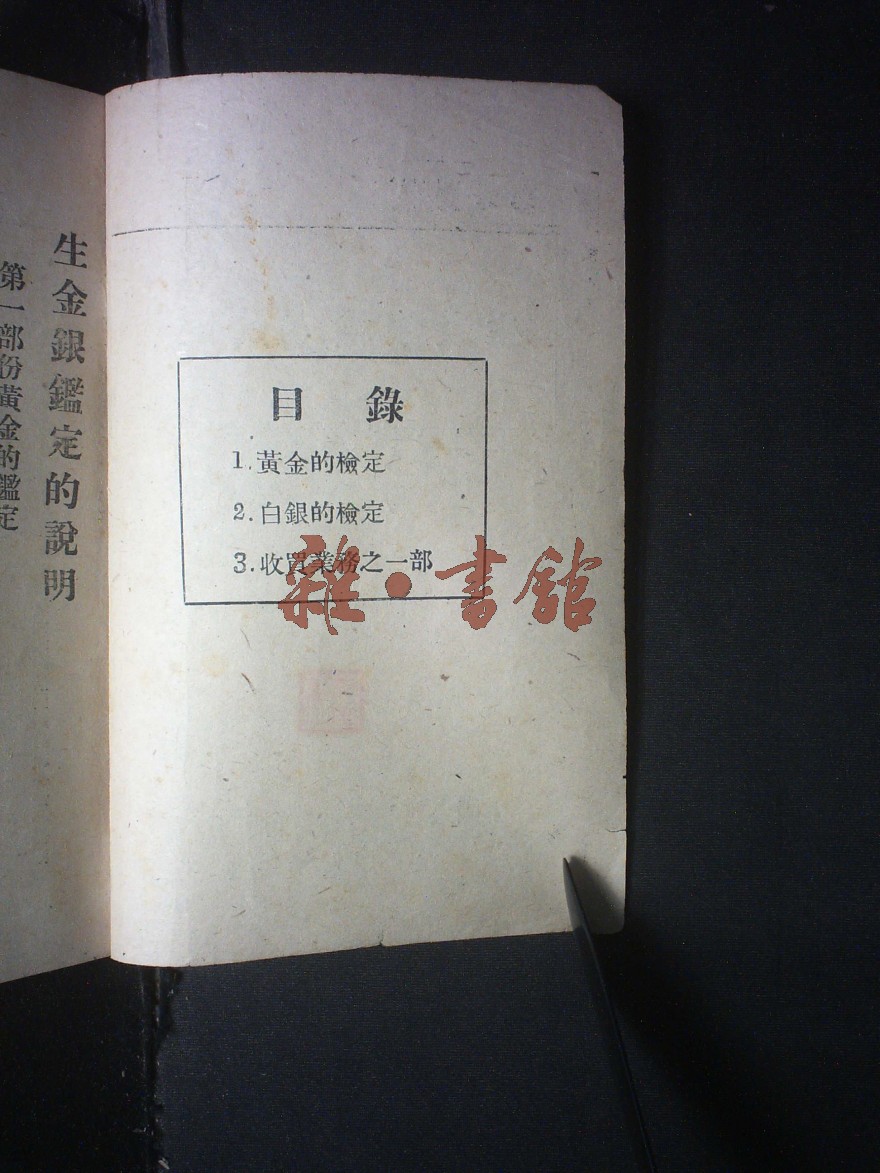 目錄
1.黃金的檢定
2.白銀的檢定
3.收買業務之一部
雜·書館
生金銀鑑定的說明
第一部份黃金的鑑定